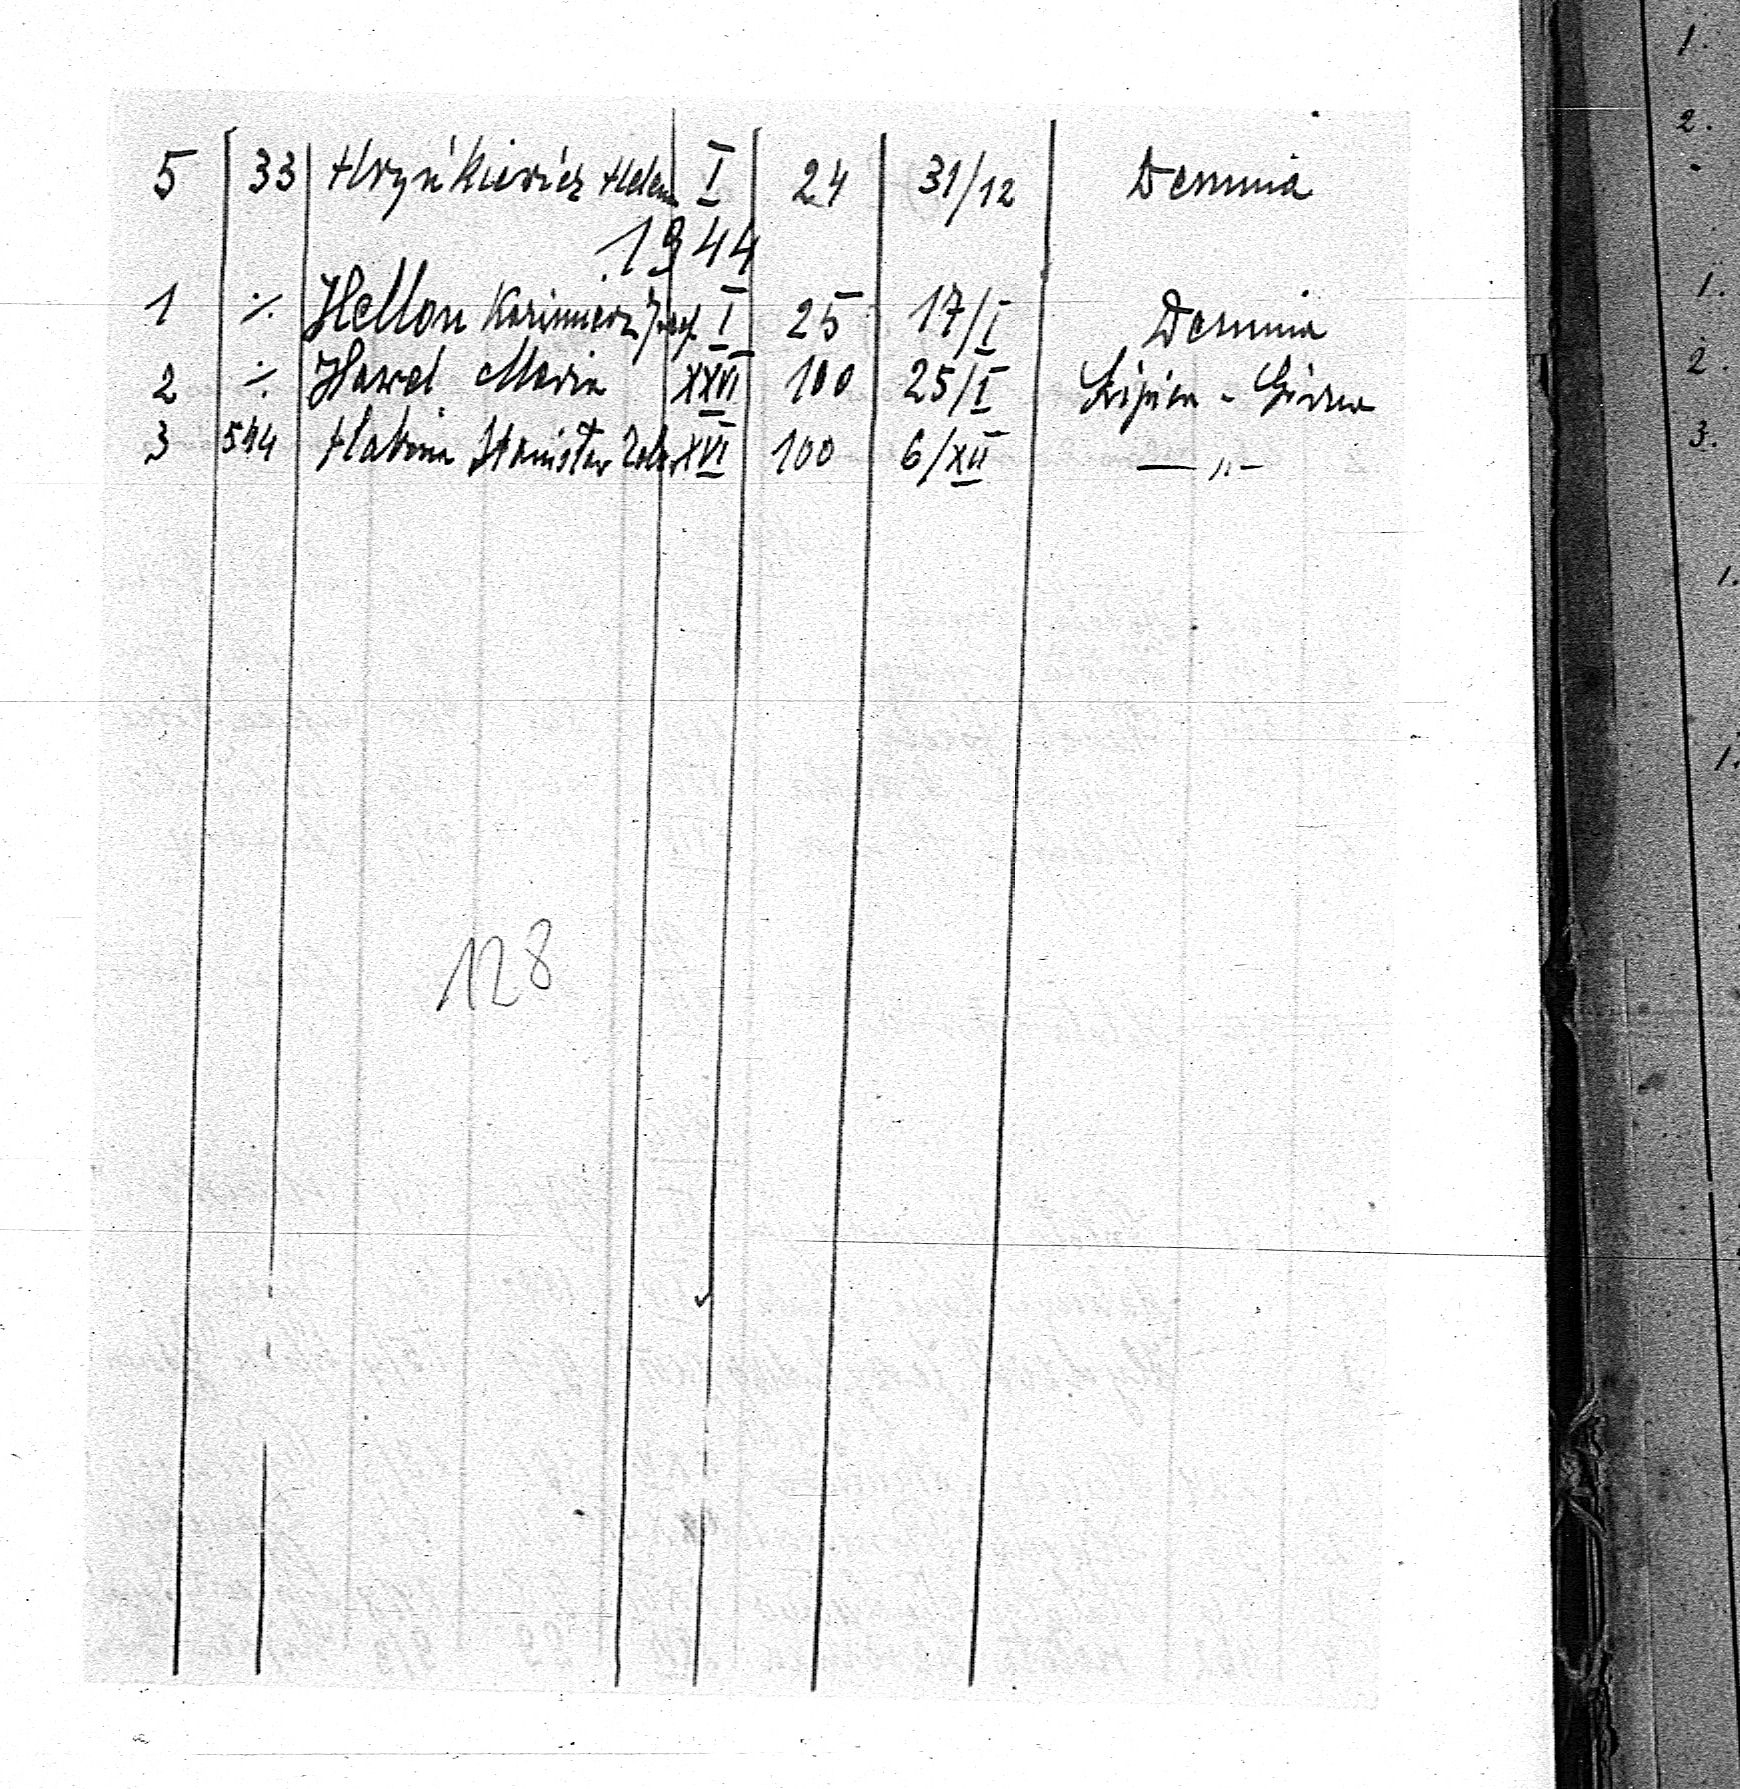 5 33 Hryńkiewicz Helena I 24 31/12 Demnia
1944
1 ·/. Hellon Kazimierz Józef I 25 17/I Demnia
2 ·/. Hawel Maria XXVI 100 25/I Lipica - Górna
3 544 Stanisław XVI 100 6/XII — „ —
128
1.
2.
1.
2.
3.
1.
1.